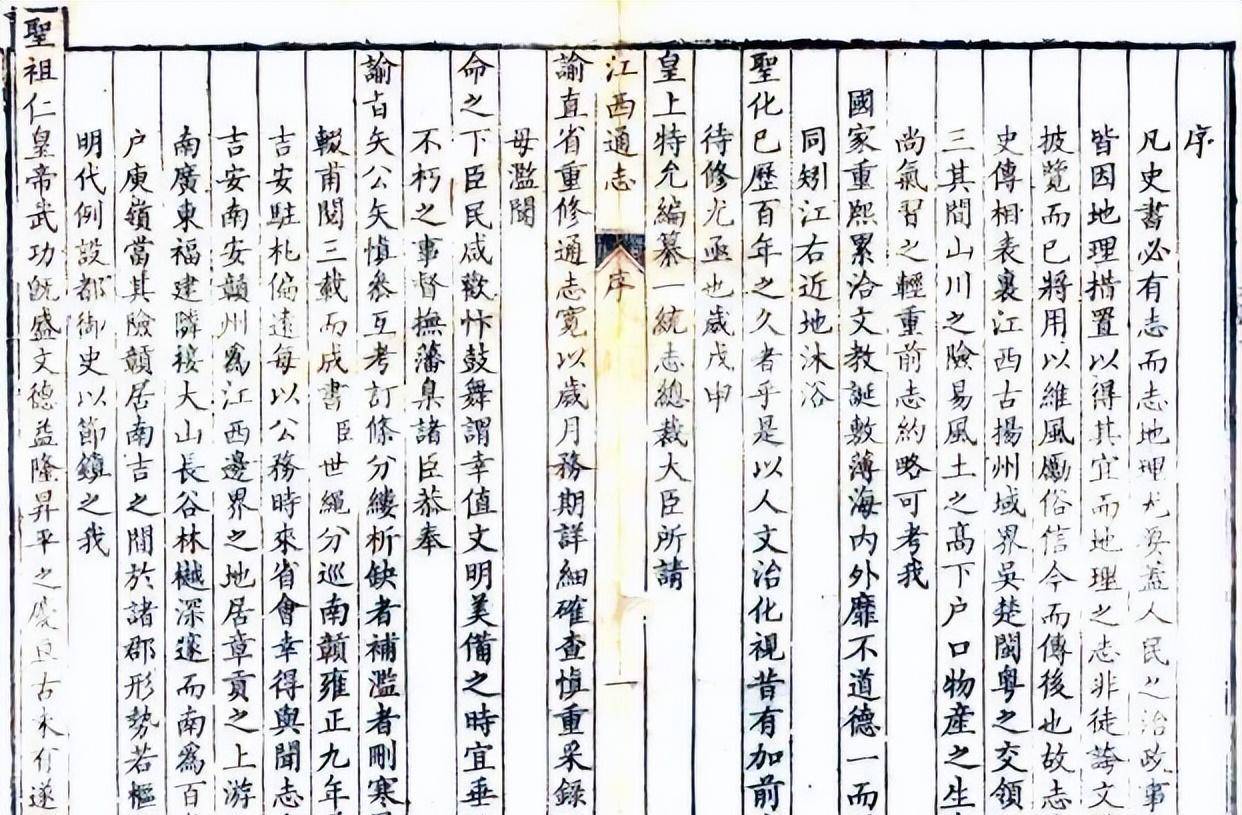 序
凡史書必有志而志地理尤要蓋人民之治政事
皆因地理措置以得其宜而地理之志非徒誇文
披覽而已將用以維風勵俗信今而傳後也故志
史傳相表裏江西古揚州域界吳楚閩粤之交領
三其間山川之險易風土之高下户口物產之生
尚氣習之輕重前志約略可考我
國家重熙累洽文教誕敷薄海內外靡不道德一而
同矧江右近地沐浴
聖化已歷百年之久者乎是以人文治化視昔有加前
待修尤亟也歲戊申
皇上特允編纂一統志總裁大臣所請
江西通志 序 一
諭直省重修通志寬以歲月務期詳細確查慎重采錄
毋濫闕
命之下臣民咸歡忭鼓舞謂幸值文明美備之時宜垂
不朽之事督撫藩臬諸臣恭奉
諭旨矢公矢慎叅互考訂條分縷析缺者補濫者刪寒
輟甫閱三載而成書臣世繩分巡南贛雍正九年
吉安駐札偏遠每以公務時來省會幸得與聞志
吉安南安贛州爲江西邊界之地居章貢之上游
南廣東福建隣接大山長谷林樾深邃而南爲百
户庾嶺當其險贛居南吉之間於諸郡形勢若樞
明代例設都御史以節鎮之我
聖祖仁皇帝武功旣盛文德益隆昇平之慶亘古未有遂